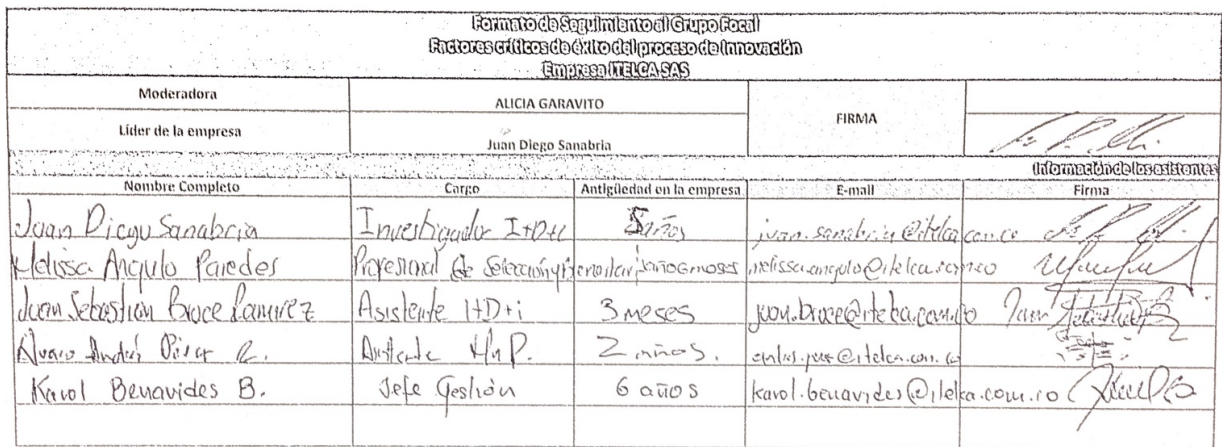 Formato de Seguimiento al Grupo Focal
Factores críticos de éxito del proceso de Innovación
Empresa ITELCA SAS
Moderadora ALICIA GARAVITO FIRMA
Líder de la empresa Juan Diego Sanabria
Información de los asistentes
Nombre Completo Cargo Antigüedad en la empresa E-mail Firma
Juan Diego Sanabria Investigador I+D+i 5 años juan.sanabria@itelca.com.co
Melissa Angulo Paredes Profesional de Selección y 1 año 6 meses melissa.angulo@itelca.com.co
Juan Sebastián Bruce Ramirez Asistente I+D+i 3 meses juan.bruce@itelca.com.co
Andrés 2 años.
Karol Benavides B. Jefe Gestión 6 años karol.benavides@itelca.com.co